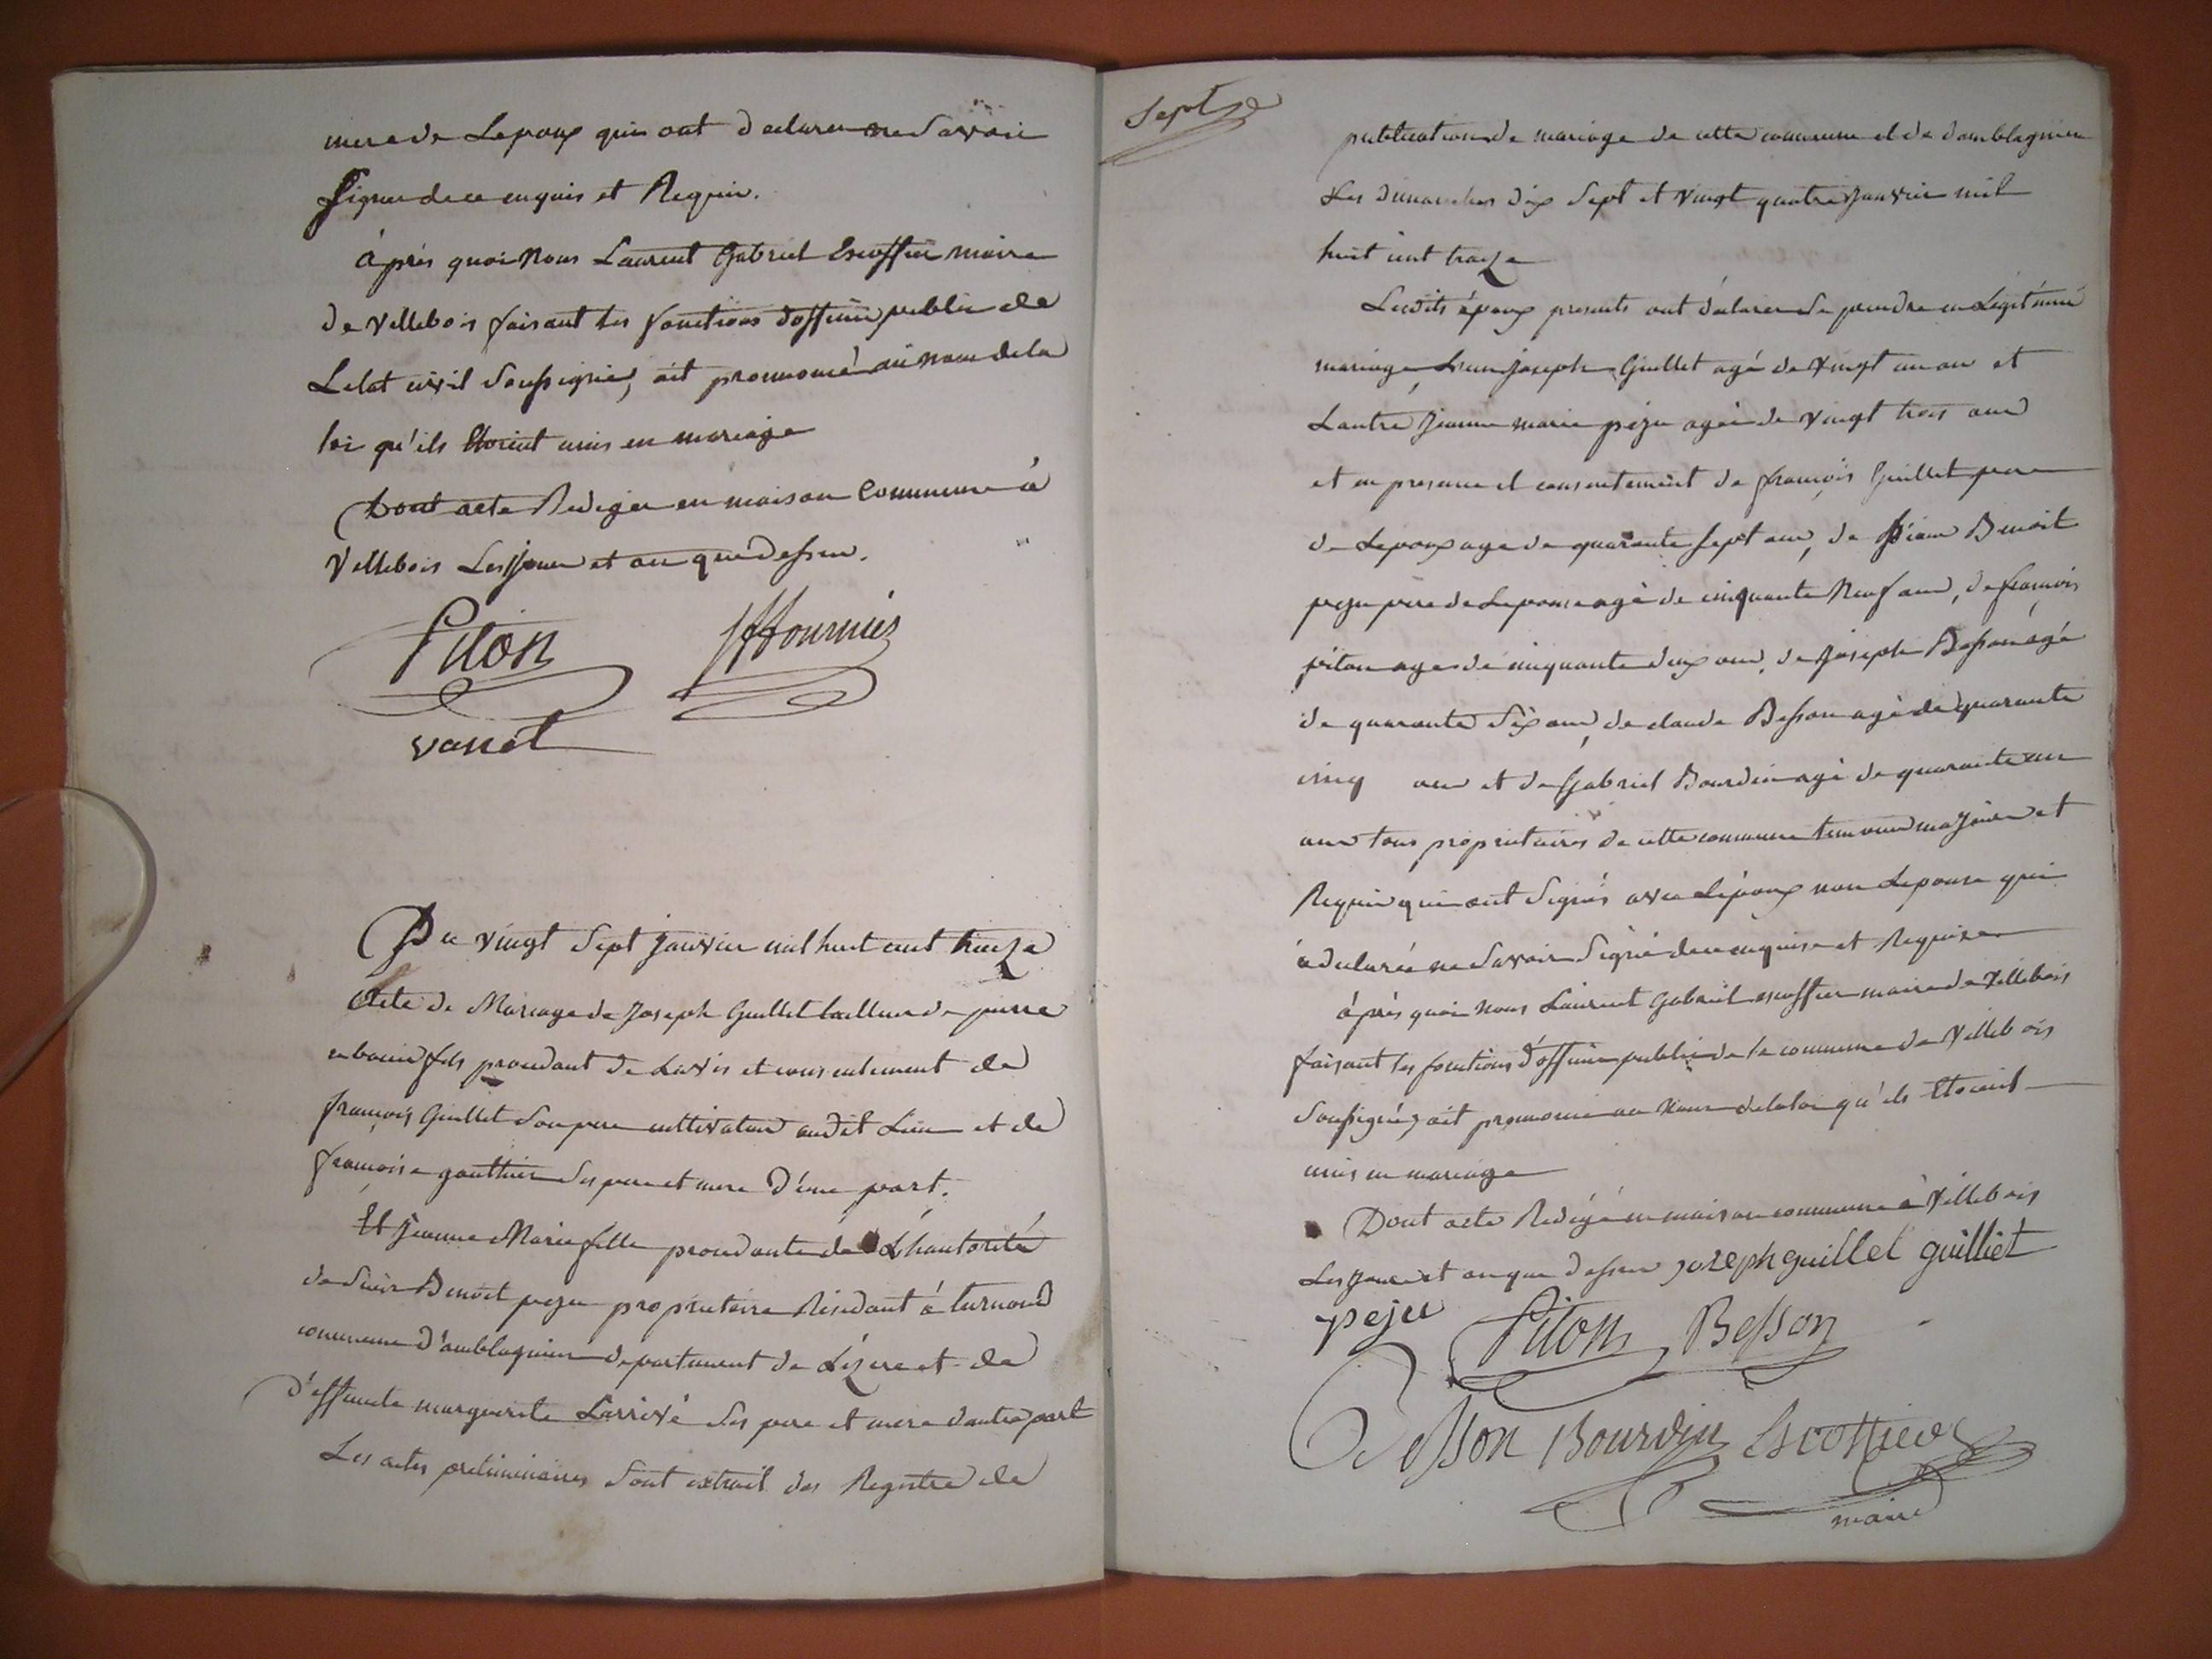 mere de Lepoux qui ont declarer ne Savoir
Signer de ce enquis et Requis.
après quoi Nous Laurent Gabriel Escoffier maire
de Villebois faisant les fonctions d'officier public de
Letat civil Soussigné, ait prononcé au nom de la
loi qu'ils Etoient unis en mariage
Dont acte Rediger en maison Commune à
Villebois Les jour et an que dessus.
Piton ffournier
vanel
Du vingt Sept janvier mil huit cent treize
Acte de Mariage de Joseph Guillet tailleur de pierre
fils procedant de Lavis et consentement de
françois Guillet Son pere cultivateur audit Lieu et de
françoise gauthier Ses pere et mere D'une part.
Et Jeanne Marie fille procedante de L'hautorité
de Sieur Benoit peju propriétaire Résidant à
commune d'amblagnieu departement de Lizere et de
deffunte marguerite Larrivé Ses pere et mere dautre part
Les actes preliminaires Sont extrait des Registre de
Sept
publication de mariage de cette commune et de damblagnieu
Les dimanches dix Sept et vingt quatre janvier mil
huit cent treize
Lesdits époux presents ont déclarer Se prendre en Légitime
mariage, L'un Joseph Guillet agé de vingt un an et
Lautre Jeanne marie peju agée de vingt trois ans
et en presence et consentement de françois Guillet pere
de Lepoux age de quarante sept ans, de Sieur Benoit
peju pere de Lepouse agé de cinquante Neuf ans, de françois
piton age de cinquante deux ans, de Joseph Besson agé
de quarante Six ans, de claude Besson agé de quarante
cinq ans et de Gabriel Bourdin agé de quarante un
ans tous propriétaires de cette commune temoins majeurs et
Requis qui ont Signés avec L'époux non Lepouse qui
à declarée ne Savoir Signé de ce enquise et Requise
après quoi nous Laurent Gabriel escoffier maire de Villebois
faisant les fonctions d'officier public de la commune de Villebois
Soussigné, ait prononcé au Nom de la loi qu'ils Etoient
unis en mariage
Dont acte Rédigé en maison commune à Villebois
Les jour et an que dessus joseph guillet guilliet
peju Piton Besson
Besson Bourdin Escoffier
maire